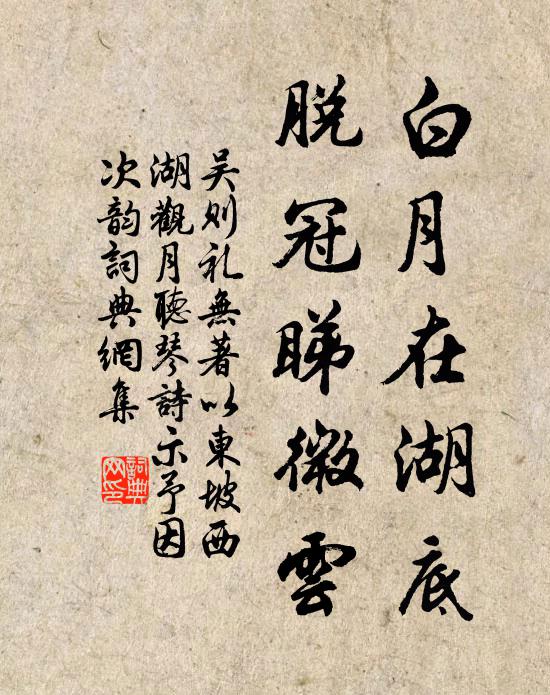 白月在湖底
脱冠睇微雲
吴则礼無著以東坡西
湖觀月聽琴詩示予因
次韵詞典網集
詞典网印